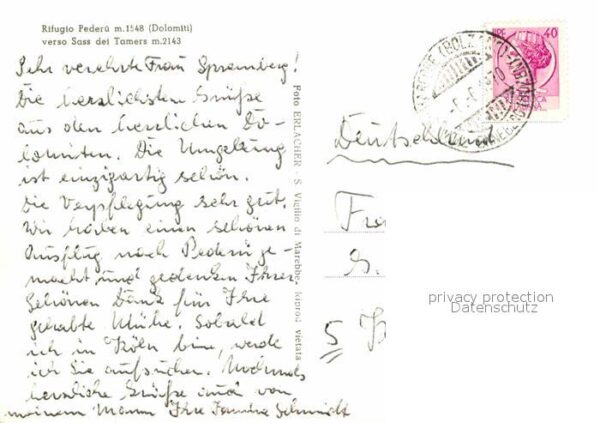 Rifugio Pederü m.1548 (Dolomiti)
verso Sass dei Tamers m.2143
Sehr verehrte Frau Spremberg!
Die herzlichsten Grüße
aus den herrlichen Do-
lomiten. Die Umgebung
ist einzigartig schön.
Die Verpflegung sehr gut.
Wir haben einen schönen
Ausflug nach Pederü ge-
macht und gedenken Ihrer.
Schönen Dank für Ihre
gehabte Mühe. Sobald
ich in Köln bin, werde
ich Sie aufsuchen. Nochmals
herzliche Grüße auch von
meinem Mann Ihre Familie Schmidt
Foto ERLACHER - S. Vigilio di Marebbe. Riprod. vietata
LIRE 40
(BOLZANO)
Deutschland
Fra
S.
5 K
privacy protection
Datenschutz